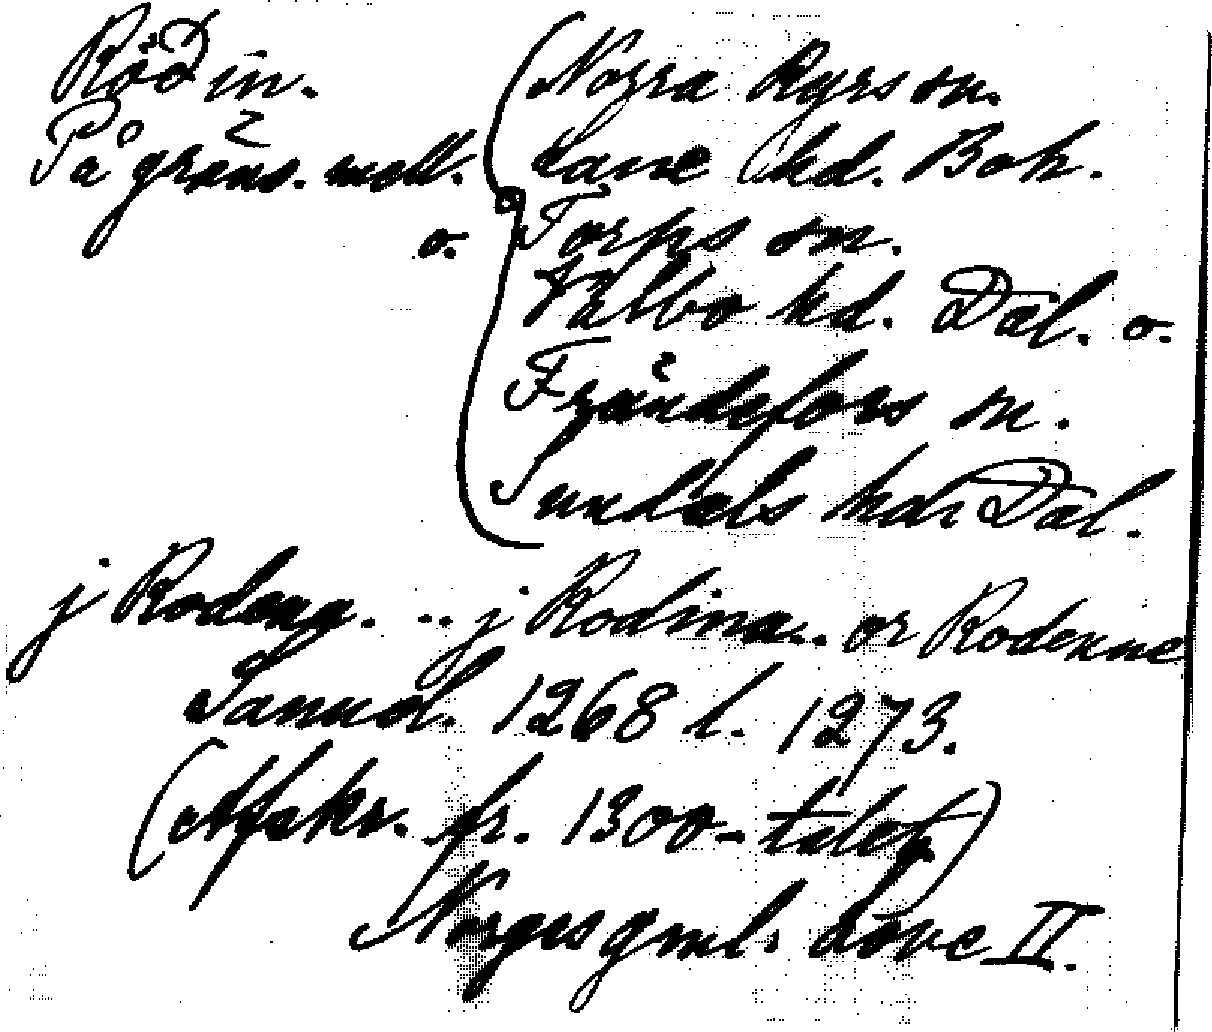 Röđin.
På gräns. mell.
Norra Ryrs sn.
Lane hd. Boh.
o. Torps sn.
Valbo hd. Dal. o.
Frändefors sn.
Sundals hd. Dal.
j Rodena. .. j Rodina.. or Rodenne
Sannol. 1268 l. 1273.
(Afskr. fr. 1300-talet)
Norges gml. Love II.